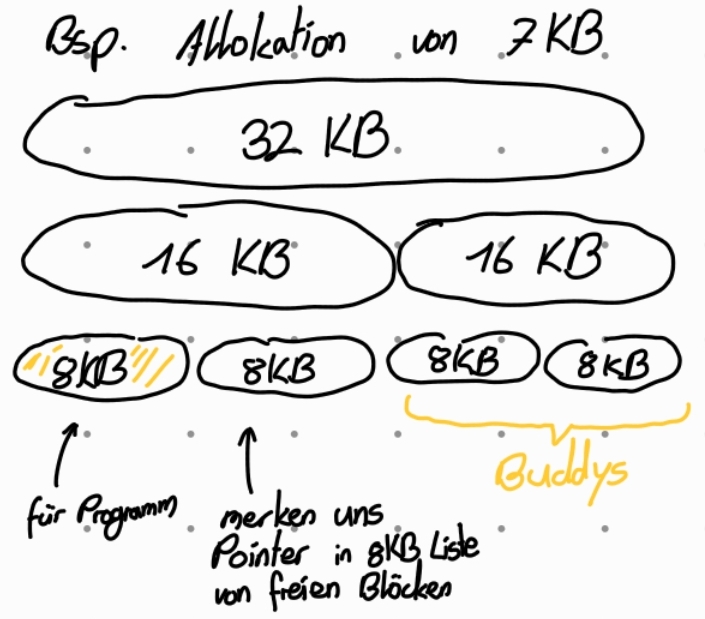 Bsp. Allokation von 7 KB
32 KB
16 KB 16 KB
8KB 8KB 8KB 8KB
Buddys
für Programm
merken uns
Pointer in 8KB Liste
von freien Blöcken